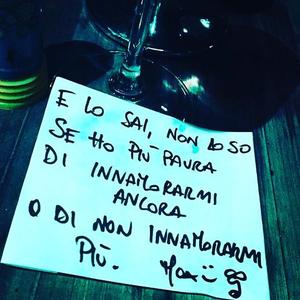 E LO SAI, NON LO SO
SE HO PIÙ PAURA
DI INNAMORARMI
ANCORA
O DI NON INNAMORARMI
PIÙ.